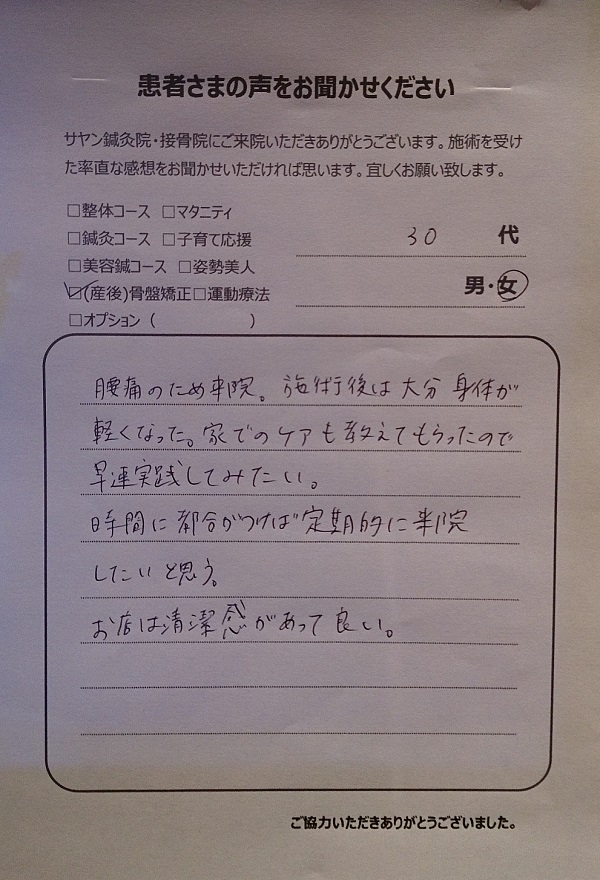 患者さまの声をお聞かせください
サヤン鍼灸院・接骨院にご来院いただきありがとうございます。施術を受け
た率直な感想をお聞かせいただければ思います。宜しくお願い致します。
□整体コース □マタニティ
□鍼灸コース □子育て応援
30 代
□美容鍼コース □姿勢美人
男・女
☑(産後)骨盤矯正□運動療法
□オプション（ ）
腰痛のため来院。施術後は大分身体が
軽くなった。家でのケアも教えてもらったので
早速実践してみたい。
時間に都合がつけば定期的に来院
したいと思う。
お店は清潔感があって良い。
ご協力いただきありがとうございました。